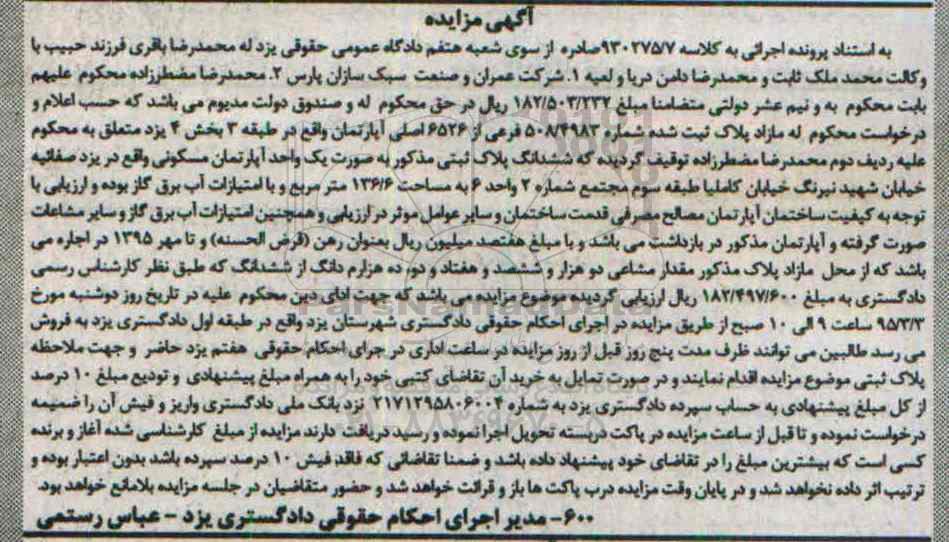 آگهی مزایده
به استناد پرونده اجرائی به کلاسه ۹۳۰۲۷۵/۷صادره از سوی شعبه هفتم دادگاه عمومی حقوقی یزد له محمدرضا باقری فرزند حبیب با
وکالت محمد ملک ثابت و محمدرضا دامن دریا و لعیه ۱. شرکت عمران و صنعت سبک سازان پارس ۲. محمدرضا مضطرزاده محکوم علیهم
بابت محکوم به و نیم عشر دولتی متضامنا مبلغ ۱۸۲/۵۰۳/۲۳۲ ریال در حق محکوم له و صندوق دولت مدیوم می باشد که حسب اعلام و
درخواست محکوم له مازاد پلاک ثبت شده شماره ۵۰۸/۴۹۸۳ فرعی از ۶۵۲۶ اصلی آپارتمان واقع در طبقه ۳ بخش ۴ یزد متعلق به محکوم
علیه ردیف دوم محمدرضا مضطرزاده توقیف گردیده که ششدانگ پلاک ثبتی مذکور به صورت یک واحد آپارتمان مسکونی واقع در یزد صفائیه
خیابان شهید نیرنگ خیابان کاملیا طبقه سوم مجتمع شماره ۲ واحد ۶ به مساحت ۱۳۶/۶ متر مربع و با امتیازات آب برق گاز بوده و ارزیابی با
توجه به کیفیت ساختمان آپارتمان مصالح مصرفی قدمت ساختمان و سایر عوامل موثر در ارزیابی و همچنین امتیازات آب برق گاز و سایر مشاعات
صورت گرفته و آپارتمان مذکور در بازداشت می باشد و با مبلغ هفتصد میلیون ریال بعنوان رهن (قرض الحسنه) و تا مهر ۱۳۹۵ در اجاره می
باشد که از محل مازاد پلاک مذکور مقدار مشاعی دو هزار و ششصد و هفتاد و دوم ده هزارم دانگ از ششدانگ که طبق نظر کارشناس رسمی
دادگستری به مبلغ ۱۸۲/۴۹۷/۶۰۰ ریال ارزیابی گردیده موضوع مزایده می باشد که جهت ادای دین محکوم علیه در تاریخ روز دوشنبه مورخ
۹۵/۳/۳ ساعت ۹ الی ۱۰ صبح از طریق مزایده در اجرای احکام حقوقی دادگستری شهرستان یزد واقع در طبقه اول دادگستری یزد به فروش
می رسد طالبین می توانند ظرف مدت پنج روز قبل از روز مزایده در ساعت اداری در جرای احکام حقوقی هفتم یزد حاضر و جهت ملاحظه
پلاک ثبتی موضوع مزایده اقدام نمایند و در صورت تمایل به خرید آن تقاضای کتبی خود را به همراه مبلغ پیشنهادی و تودیع مبلغ ۱۰ درصد
از کل مبلغ پیشنهادی به حساب سپرده دادگستری یزد به شماره ۲۱۷۱۲۹۵۸۰۶۰۰۴ نزد بانک ملی دادگستری واریز و فیش آن را ضمیمه
درخواست نموده و تا قبل از ساعت مزایده در پاکت دربسته تحویل اجرا نموده و رسید دریافت دارند مزایده از مبلغ کارشناسی شده آغاز و برنده
کسی است که بیشترین مبلغ را در تقاضای خود پیشنهاد داده باشد و ضمنا تقاضائی که فاقد فیش ۱۰ درصد سپرده باشد بدون اعتبار بوده و
ترتیب اثر داده نخواهد شد و در پایان وقت مزایده درب پاکت ها باز و قرائت خواهد شد و حضور متقاضیان در جلسه مزایده بلامانع خواهد بود.
۶۰۰- مدیر اجرای احکام حقوقی دادگستری یزد - عباس رستمی
ParsNamadData